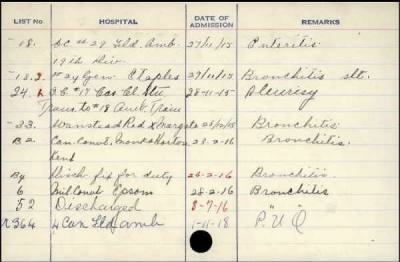 LIST NO HOSPITAL DATE OF ADMISSION REMARKS
18. O.C. #29 Fld. Amb. 27/11/15 Enteritis.
19th Div.
18.2. #24 Gen. Etaples 29/11/15 Bronchitis slt.
24. O.C. #17 Cas Cl Stn 28-11-15 Pleurisy
Trans to #18 Amb. Train
33. Wanstead Red X Margate Bronchitis
B2. Can. Conval. Monks Horton 28-2-16 Bronchitis.
Kend
B4 Disch fit for duty 26-2-16 Bronchitis
6 Mil Conval Epsom 28-2-16 Bronchitis
52 Discharged 8-7-16
364 4 Can Fld Amb 1-11-18 P.U.O